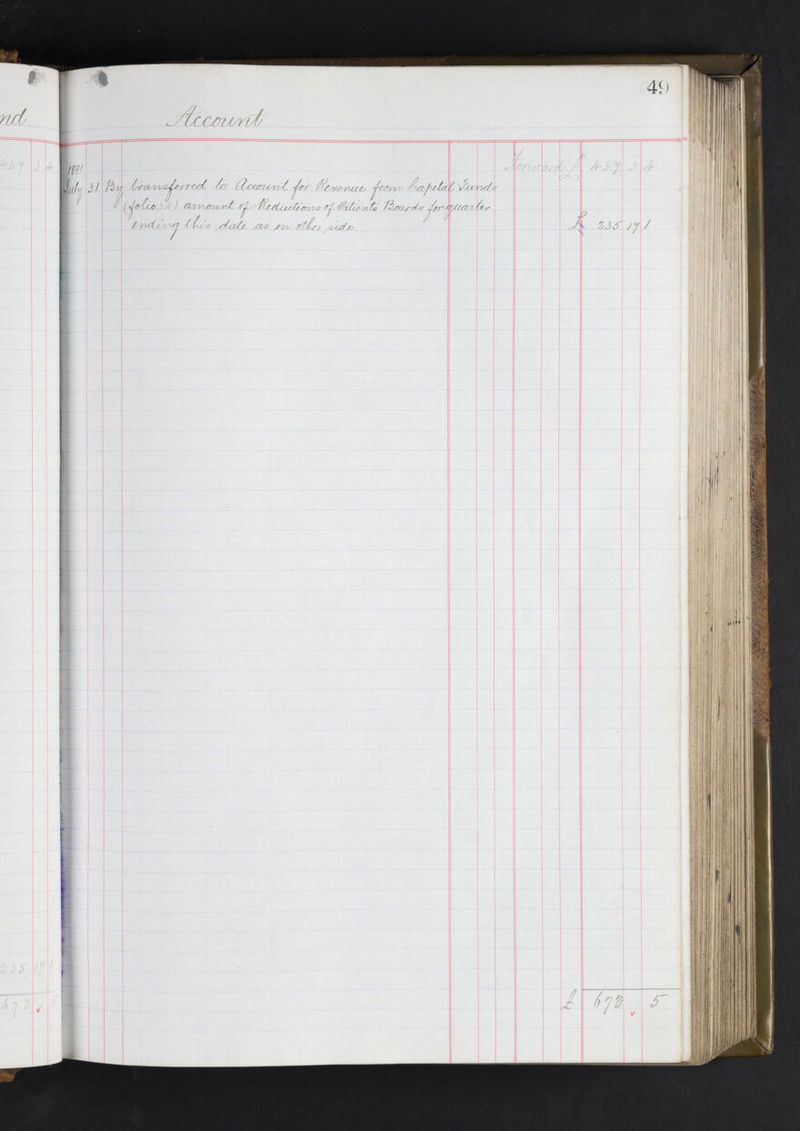 nd
437 3 4
235 17 1
673 5
49
Account
Forward £ 437 3 4
July 31 By transferred to Account for Revenue from Capital Funds
(folio ) amount of Reductions of Patients Boards for quarter
ending this date as on other side £ 235 17 1
£ 673 5